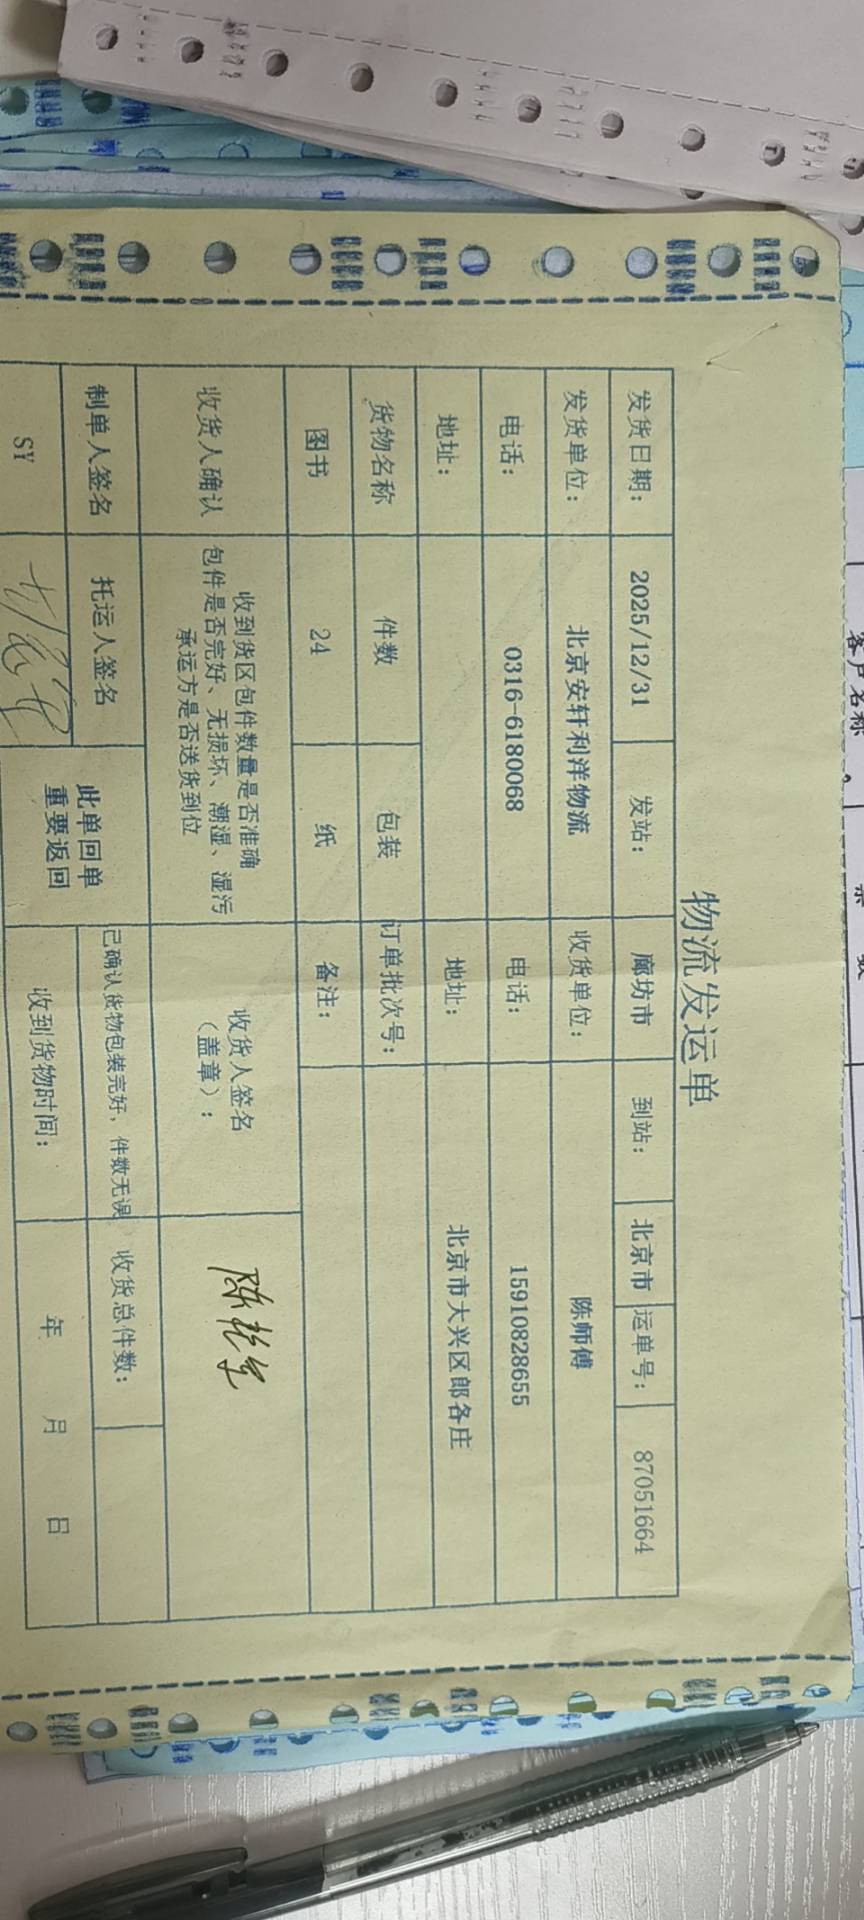 物流发运单
发货日期： 2025/12/31 发站： 廊坊市 到站： 北京市 运单号： 87051664
发货单位： 北京安轩利洋物流 收货单位： 陈师傅
电话： 0316-6180068 电话： 15910828655
地址： 地址： 北京市大兴区郎各庄
货物名称 件数 包装 订单批次号：
图书 24 纸 备注：
收货人确认 收到货区包件数量是否准确
包件是否完好、无损坏、潮湿、湿污
承运方是否送货到位
收货人签名
（盖章）：
制单人签名 托运人签名 此单回单
重要返回
已确认货物包装完好，件数无误 收货总件数：
SY 收到货物时间： 年 月 日
客户名称